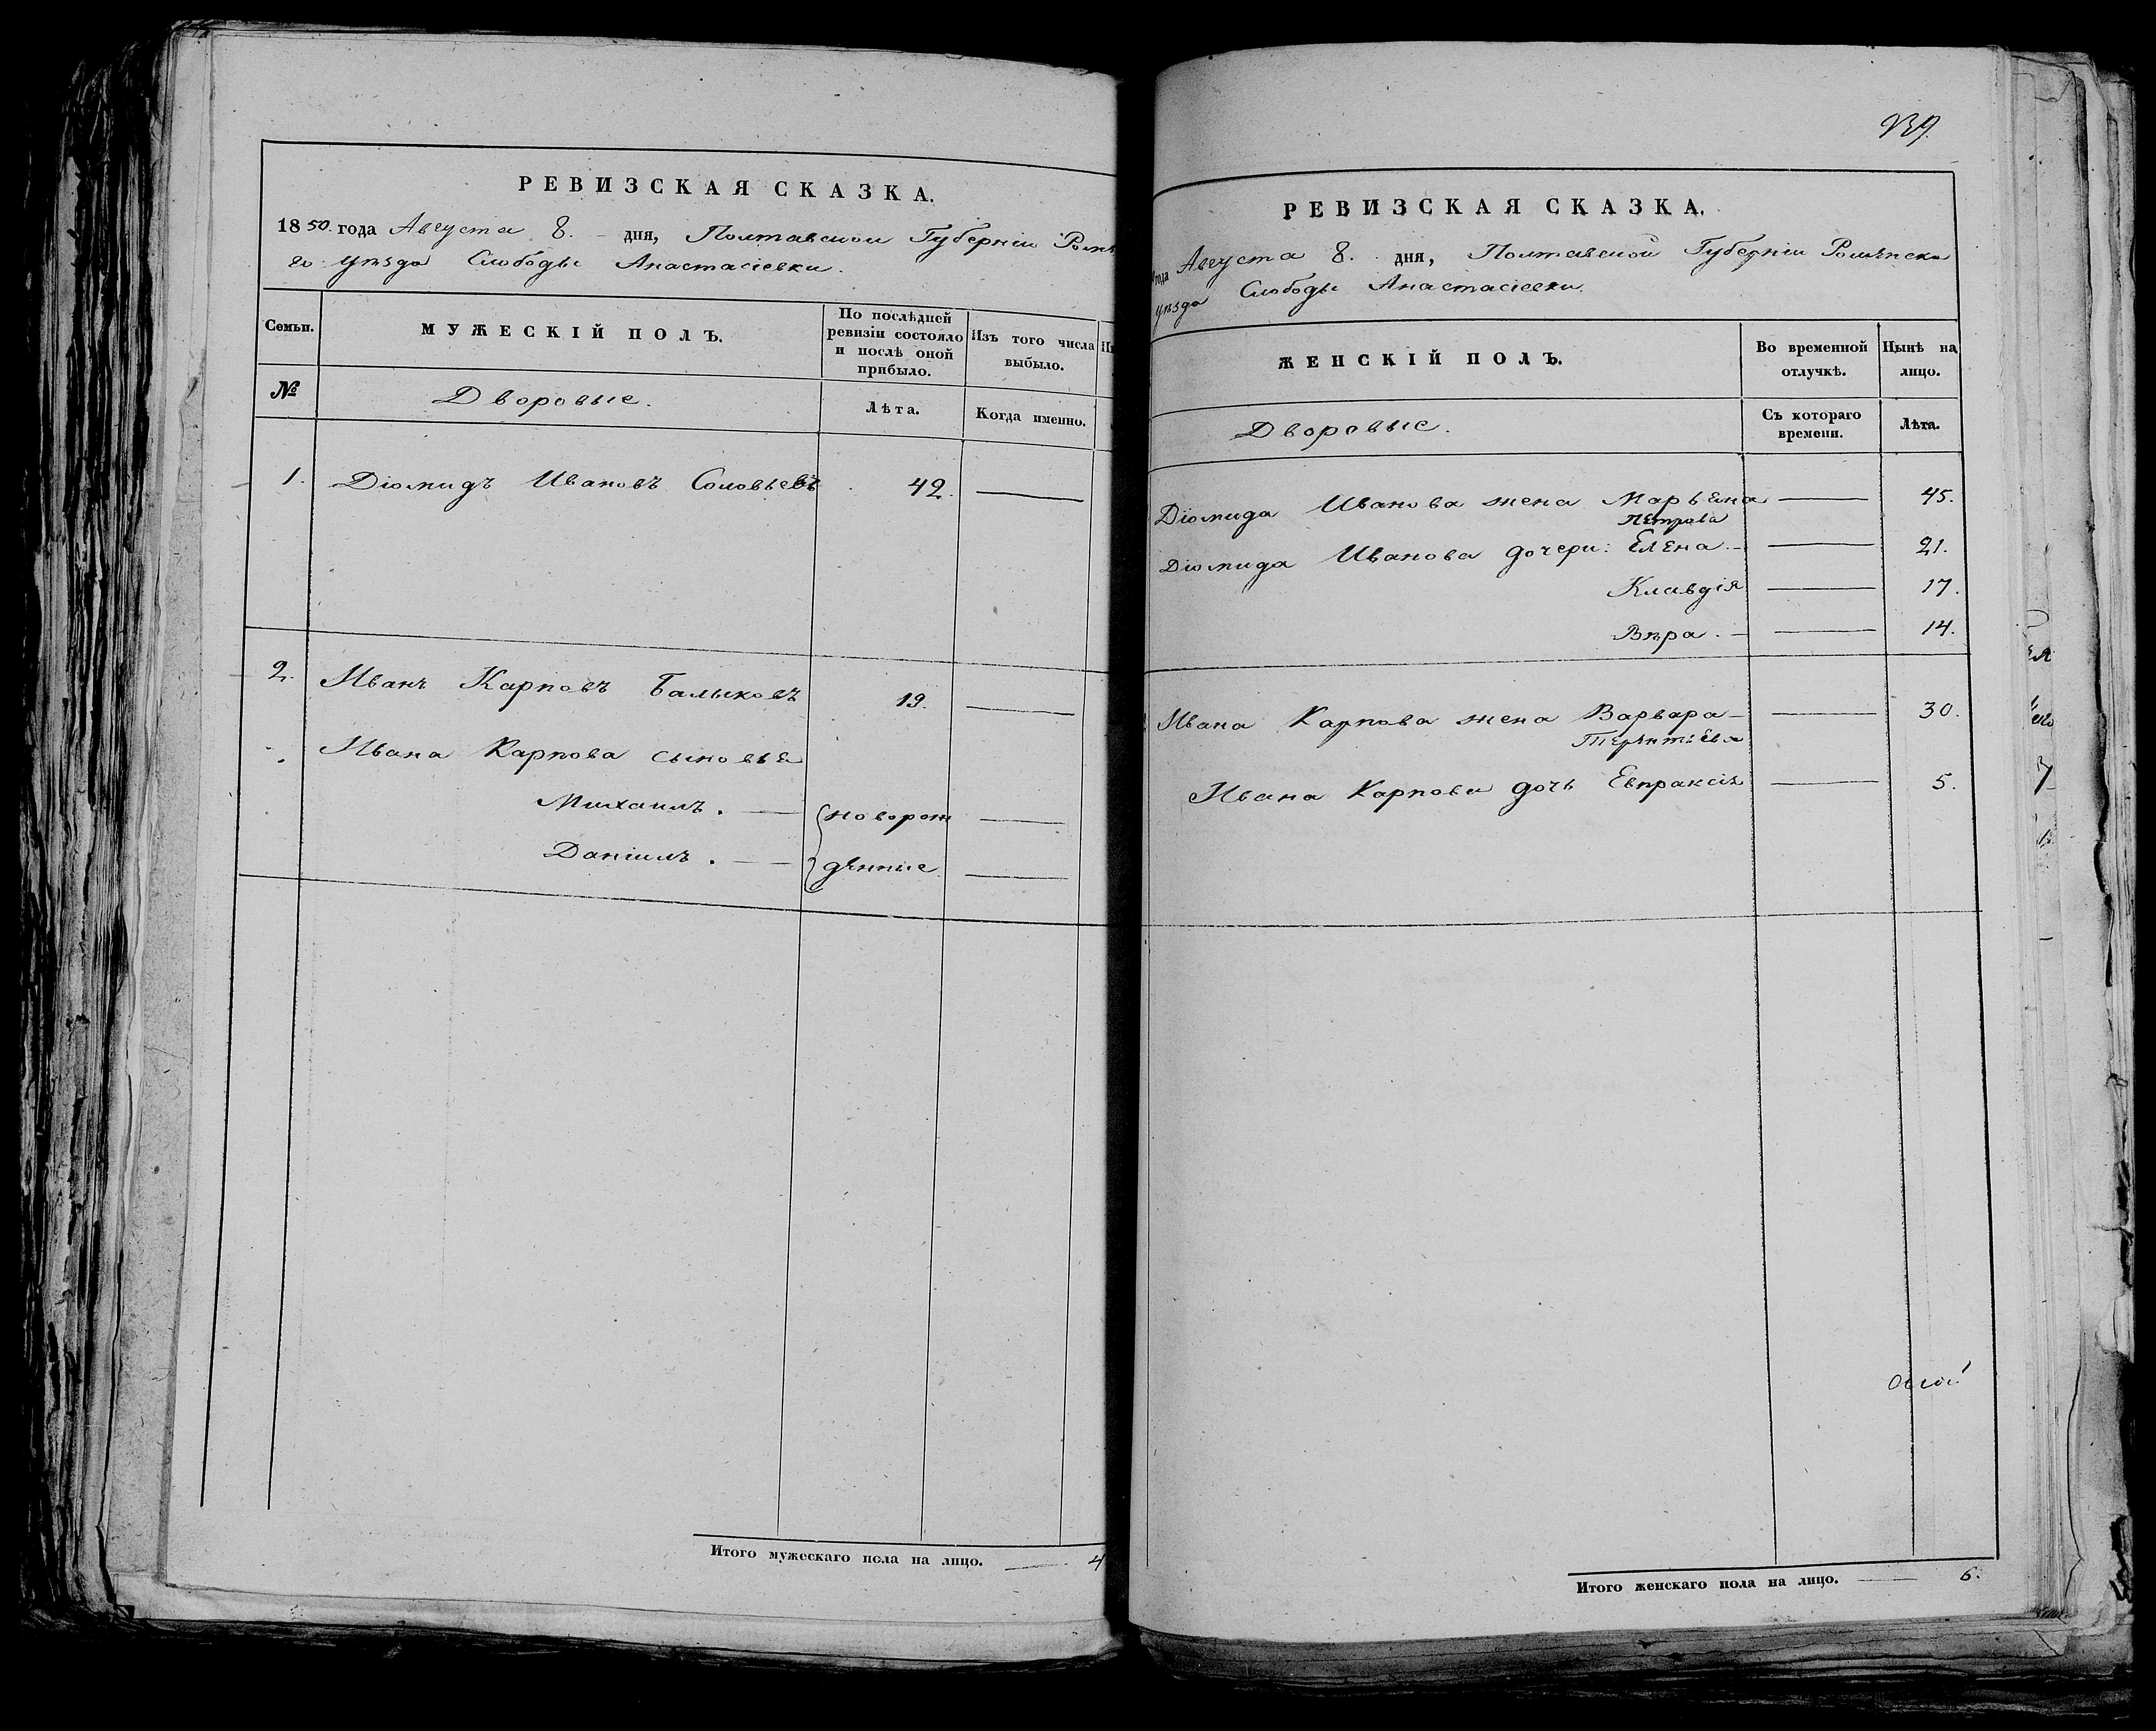 РЕВИЗСКАЯ СКАЗКА.
1850. года Августа 8. дня, Полтавской Губерніи Роме
го уѣзда Слободы Анастасіевки.
Семьи. МУЖЕСКІЙ ПОЛЪ. По послѣдней ревизіи состояло и послѣ оной прибыло. Изъ того числа выбыло.
№ Дворовые. Лѣта. Когда именно.
1. Діомидъ Ивановъ Соловьевъ 42. —
2. Иванъ Карповъ Балыковъ 19. —
Ивана Карпова сыновья
Михаилъ. — новорож —
Даніилъ. — денные —
Итого мужескаго пола на лицо. — 4
РЕВИЗСКАЯ СКАЗКА.
года Августа 8. дня, Полтавской Губерніи Роменска
уѣзда Слободы Анастасіевки.
ЖЕНСКІЙ ПОЛЪ. Во временной отлучкѣ. Нынѣ на лицо.
Дворовые. Съ котораго времени. Лѣта.
Діомида Иванова жена Марьяна — 45.
Петрова
Діомида Иванова дочери: Елена — 21.
Клавдія — 17.
Вѣра. — 14.
Ивана Карпова жена Варвара — 30.
Терентіева
Ивана Карпова дочь Евпраксія — 5.
Итого женскаго пола на лицо. — 6.